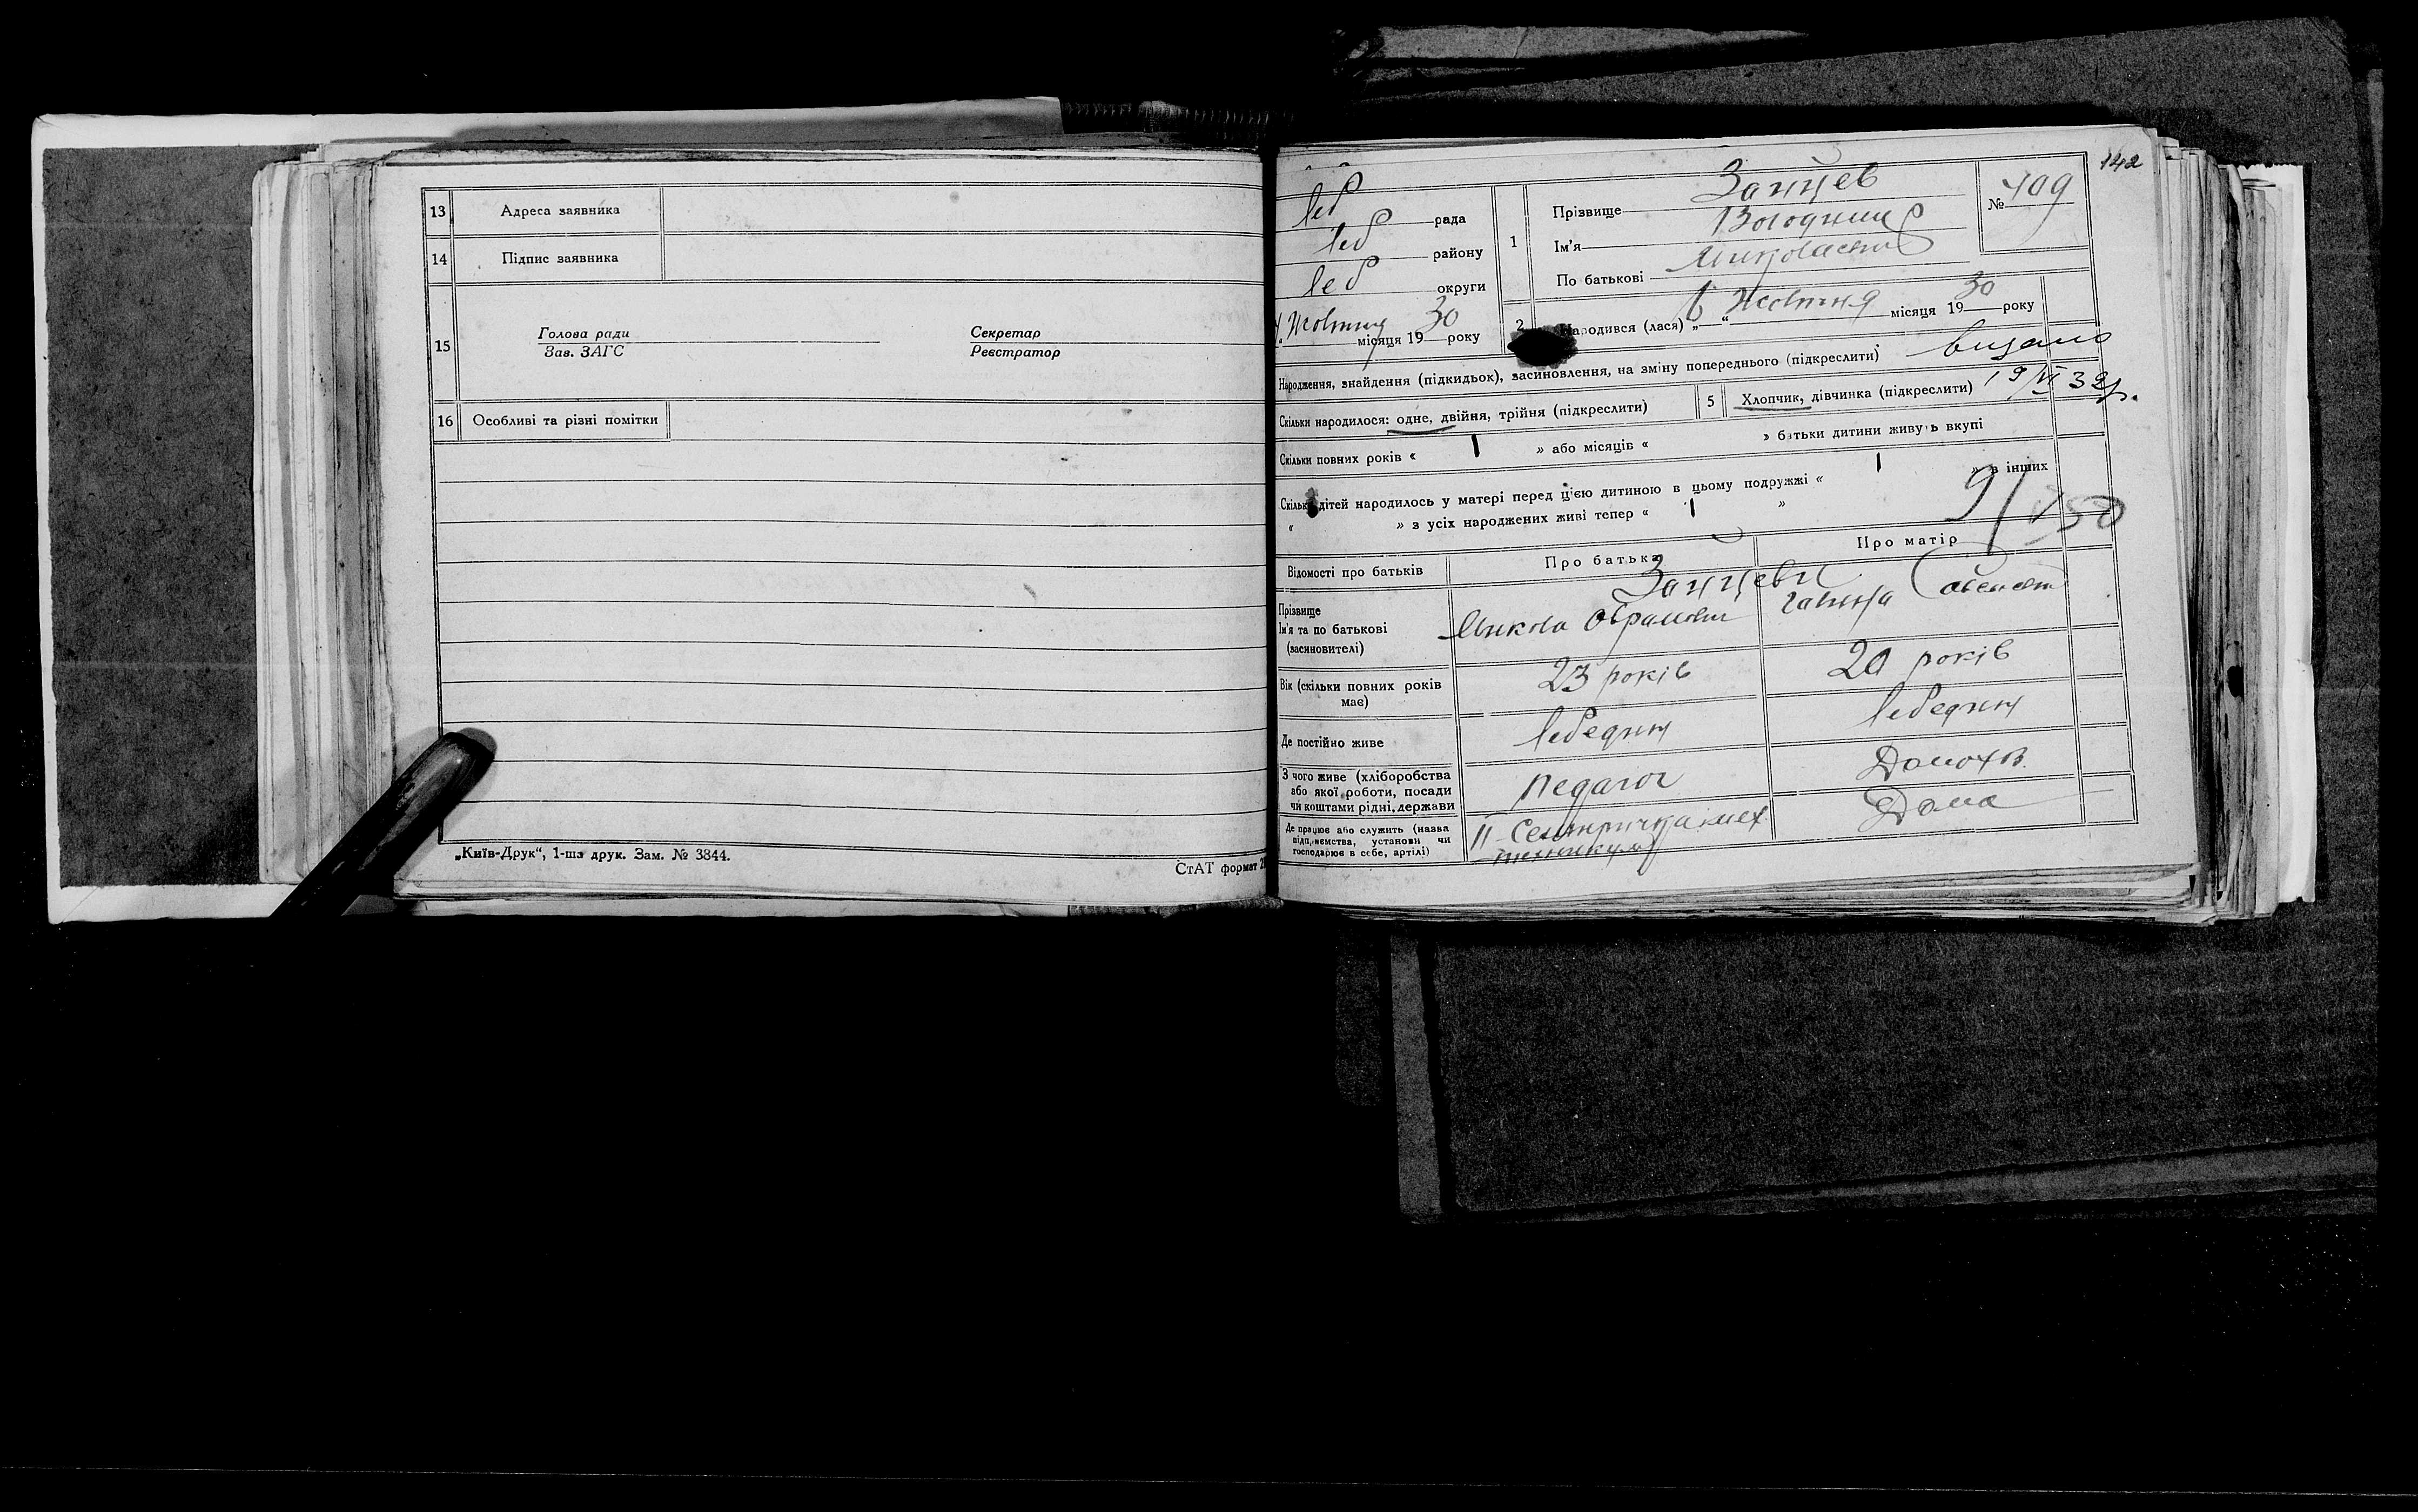 13 Адреса заявника
14 Підпис заявника
15 Голова ради Секретар
Зав. ЗАГС Реєстратор
16 Особливі та різні помітки
„Київ-Друк“, 1-ша друк. Зам. № 3844.
СтАТ формат
142
Леб рада
Леб району
Леб округи
Жовтня місяця 1930 року
1 Прізвище Зайцев
Ім'я Володимир
По батькові Миколаєвич
№ 409
2 Народився (лася) „6“ Жовтня місяця 1930 року
Народження, знайдення (підкидьок), засиновлення, на зміну попереднього (підкреслити) видано
19/VI 32р.
Скільки народилося: одне, двійня, трійня (підкреслити) 5 Хлопчик, дівчинка (підкреслити)
Скільки повних років « 1 » або місяців « » батьки дитини живуть вкупі
Скільки дітей народилось у матері перед цією дитиною в цьому подружжі « 1 » в інших
« » з усіх народжених живі тепер « 1 »
91
150
Відомості про батьків Про батька Про матір
Прізвище Зайцеви
Ім'я та по батькові Микола Абрамович Галина
(засиновителі)
Вік (скільки повних років має) 23 років 20 років
Де постійно живе Лебедин Лебедин
З чого живе (хліборобства або якої роботи, посади чи коштами рідні, держави Педагог Домохв.
Де працює або служить (назва підприємства, установи чи господарює в себе, артілі) Дома
технікум